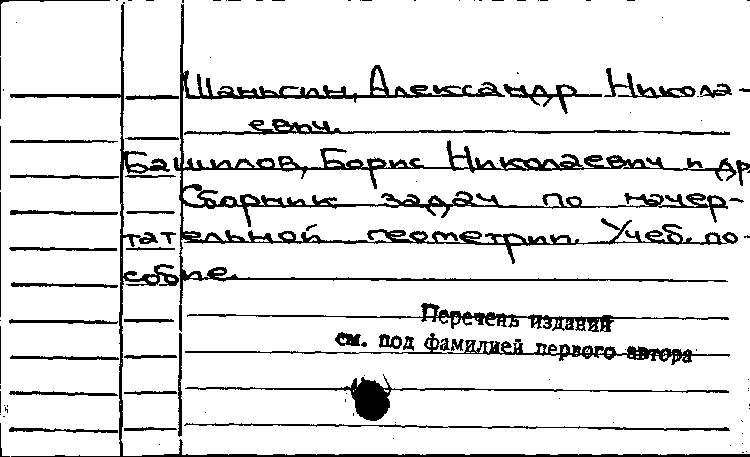 Шаньгин, Александр Никола-
евич.
Башилов, Борис Николаевич и др
Сборник задач по начер-
тательной геометрии. Учеб. по-
собие.
Перечень изданий
см. под фамилией первого автора